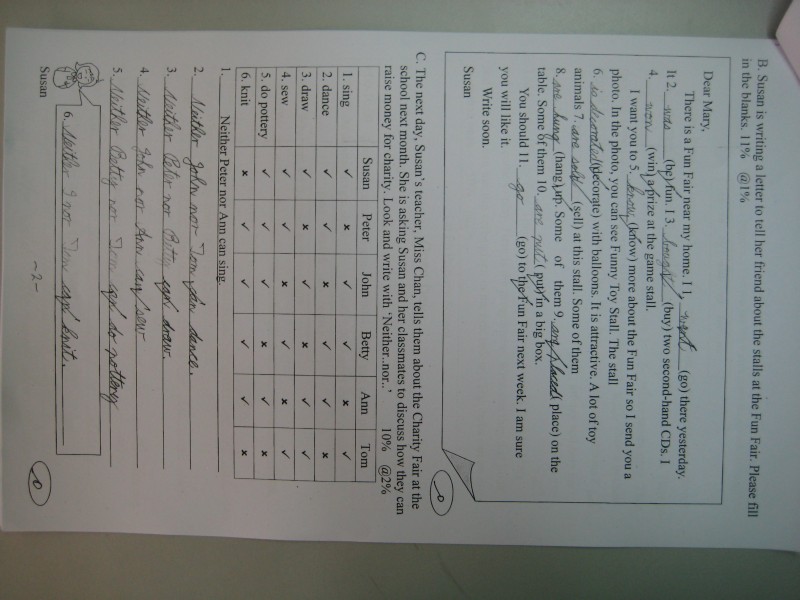 B. Susan is writing a letter to tell her friend about the stalls at the Fun Fair. Please fill
in the blanks. 11% @1%
Dear Mary,
There is a Fun Fair near my home. I 1. went (go) there yesterday.
It 2. was (be) fun. I 3. bought (buy) two second-hand CDs. I
4. won (win) a prize at the game stall.
I want you to 5. know (know) more about the Fun Fair so I send you a
photo. In the photo, you can see Funny Toy Stall. The stall
6. is decorated (decorate) with balloons. It is attractive. A lot of toy
animals 7. are sold (sell) at this stall. Some of them
8. are hung (hang) up. Some of them 9. are placed (place) on the
table. Some of them 10. are put (put) in a big box.
You should 11. go (go) to the Fun Fair next week. I am sure
you will like it.
Write soon.
Susan
0
C. The next day, Susan's teacher, Miss Chan, tells them about the Charity Fair at the
school next month. She is asking Susan and her classmates to discuss how they can
raise money for charity. Look and write with 'Neither..nor..' 10% @2%
Susan Peter John Betty Ann Tom
1. sing ✓ × ✓ ✓ × ✓
2. dance ✓ ✓ × ✓ ✓ ×
3. draw ✓ × ✓ × ✓ ✓
4. sew ✓ ✓ × ✓ × ✓
5. do pottery ✓ ✓ ✓ × ✓ ×
6. knit × ✓ ✓ ✓ ✓ ×
1. Neither Peter nor Ann can sing
2. Neither John nor Tom can dance.
3. Neither Peter nor Betty can draw
4. Neither John nor Ann can sew
5. Neither Betty nor Tom can do pottery
6. Neither I nor Tom can knit.
Susan
-2-
0